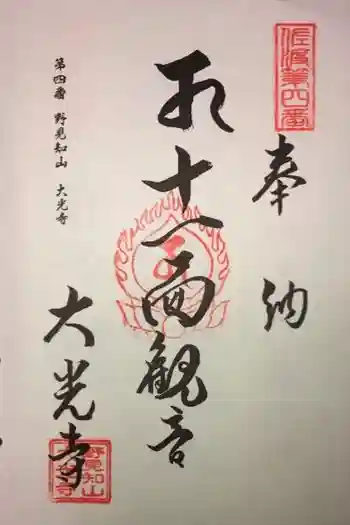 佐波第四番
奉納
十一面観音
大光寺
第四番 野見知山 大光寺
野見知山
大光寺